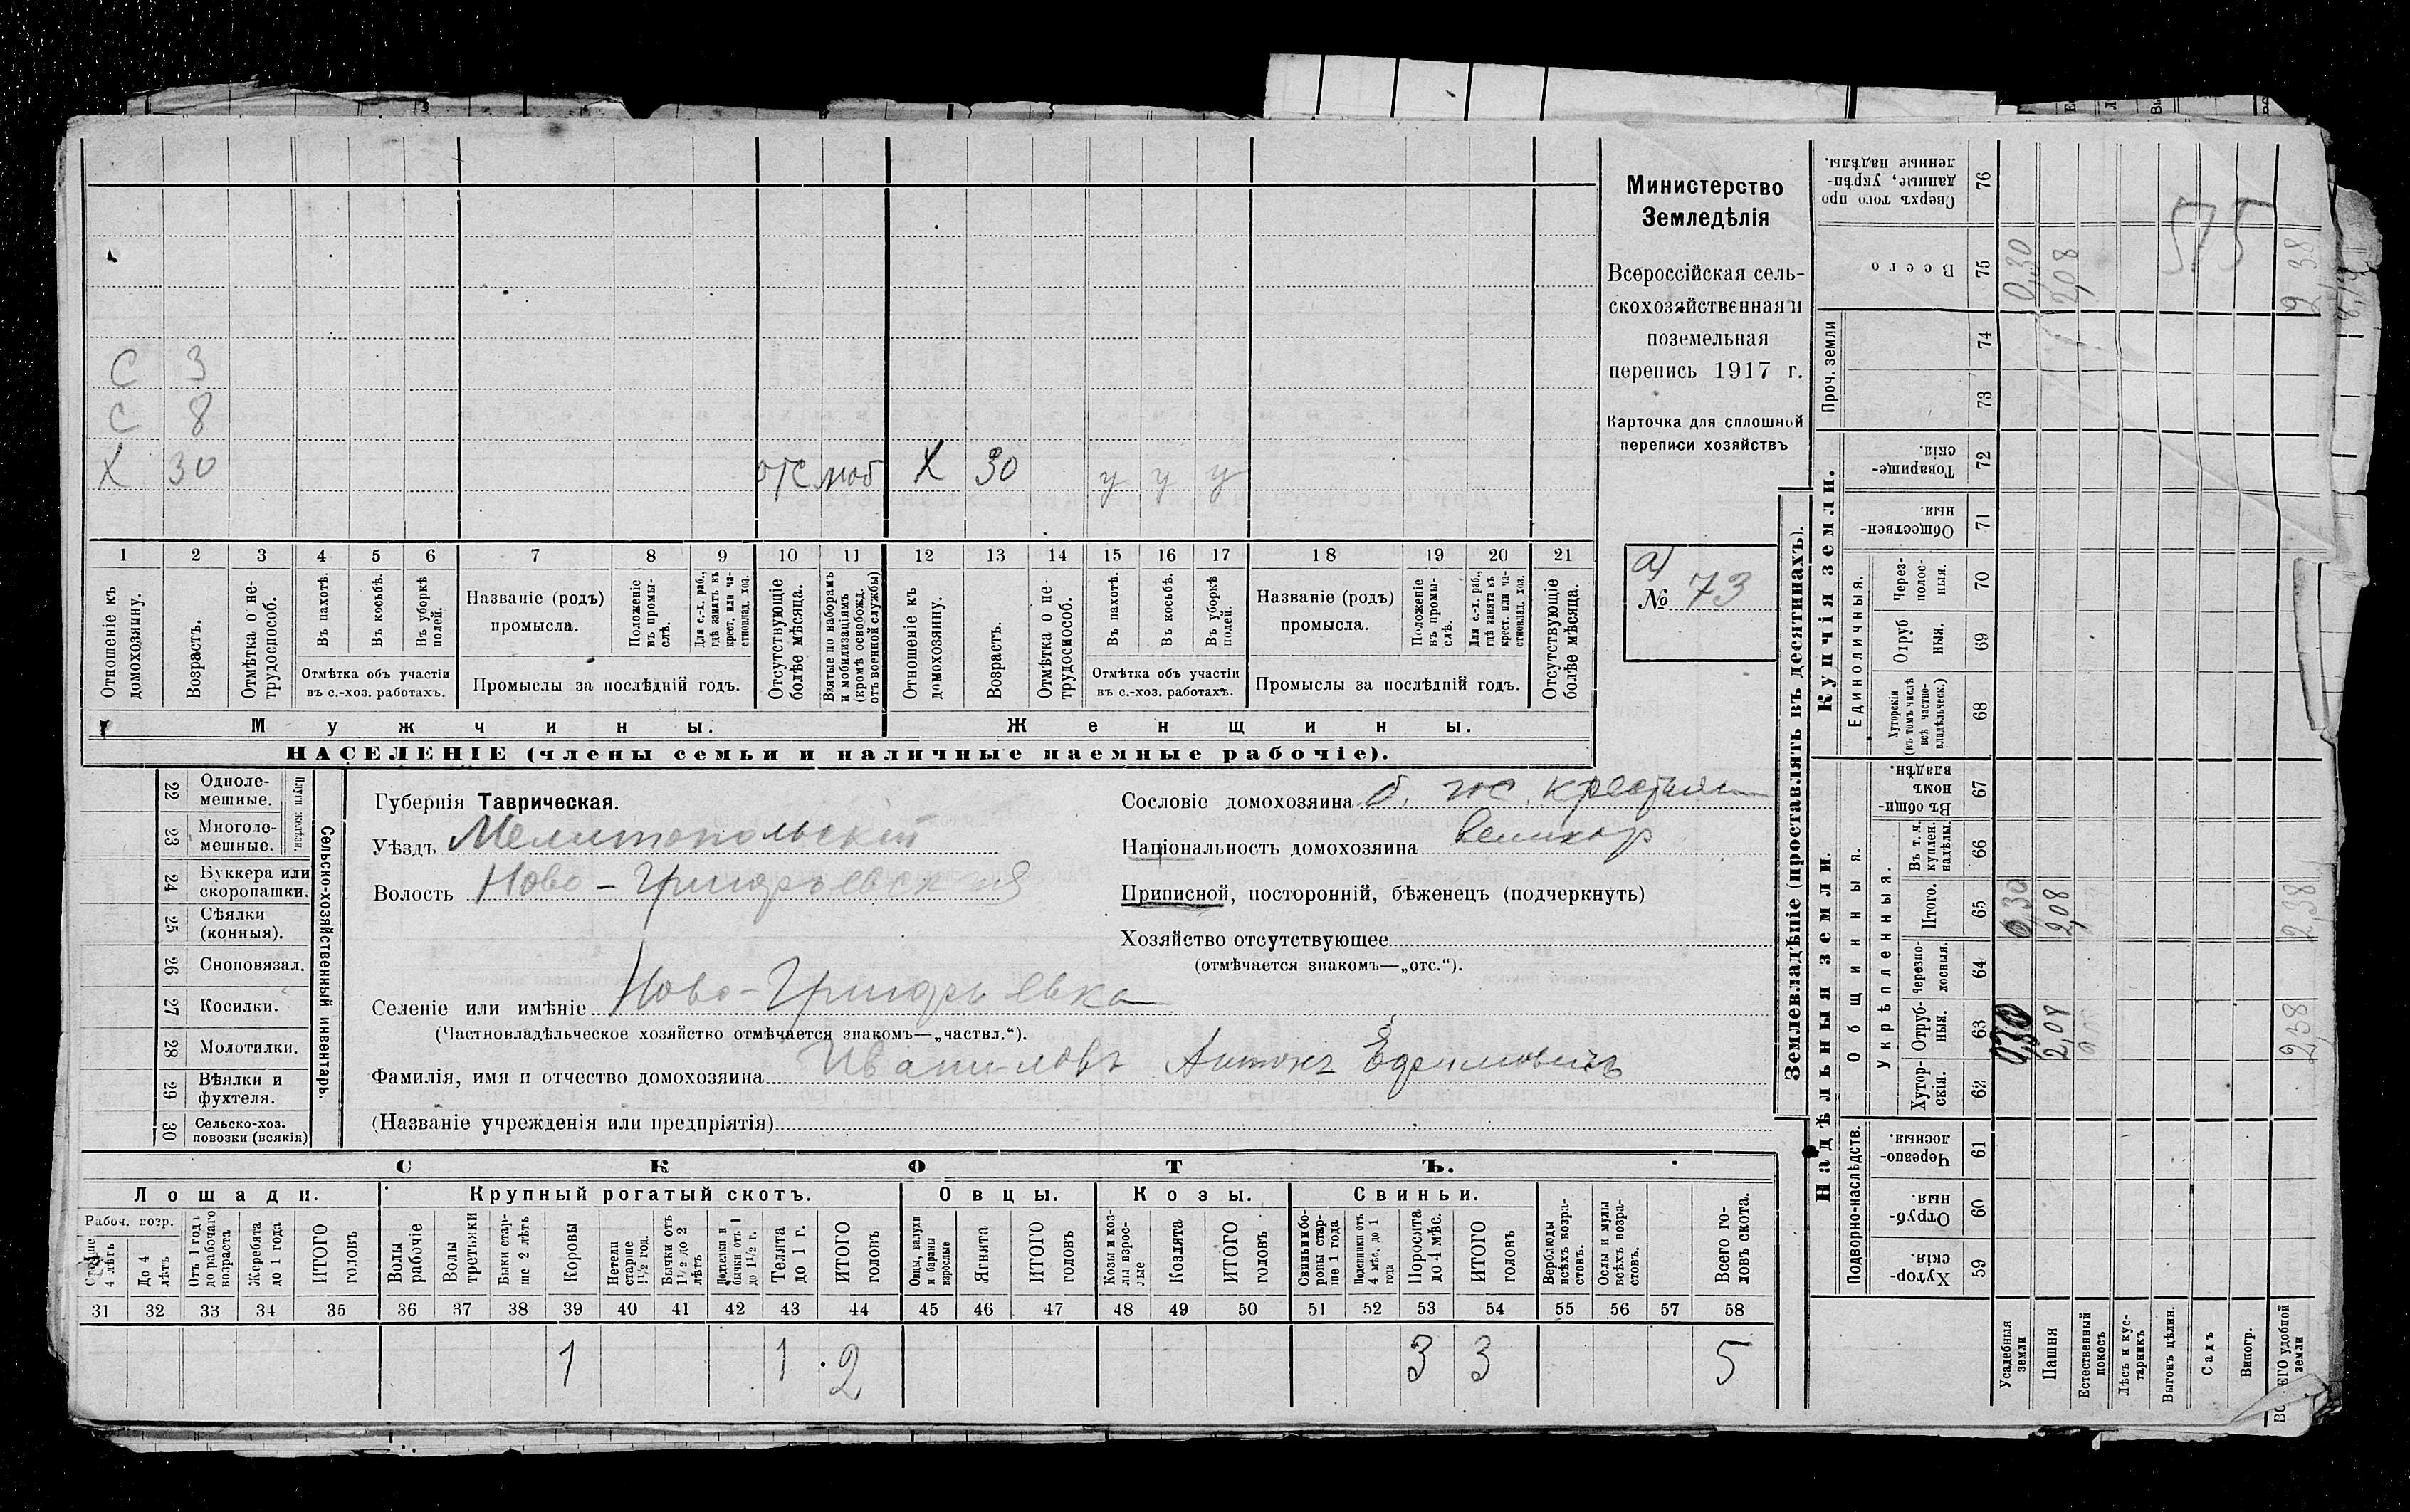 Министерство
Земледѣлія
Всероссійская сель-
скохозяйственная и
поземельная
перепись 1917 г.
Карточка для сплошной
переписи хозяйствъ
а)
№ 73
С 3
С 8
Х 30 отс моб Х 30 у у у
1 2 3 4 5 6 7 8 9 10 11 12 13 14 15 16 17 18 19 20 21
Отношеніе къ домохозяину.
Возрастъ.
Отмѣтка о не-трудоспособ.
Въ пахотѣ.
Въ косьбѣ.
Въ уборкѣ полей.
Отмѣтка объ участіи
въ с.-хоз. работахъ.
Названіе (родъ)
промысла.
Положеніе въ промы-слѣ.
Для с.-х. раб., гдѣ занятъ въ крест. или ча-стновлад. хоз.
Промыслы за послѣдній годъ.
Отсутствующіе болѣе мѣсяца.
Взятые по наборамъ и мобилизаціямъ (кромѣ освобожд. отъ военной службы)
Отношеніе къ домохозяину.
Возрастъ.
Отмѣтка о не-трудоспособ.
Въ пахотѣ.
Въ косьбѣ.
Въ уборкѣ полей.
Отмѣтка объ участіи
въ с.-хоз. работахъ.
Названіе (родъ)
промысла.
Положеніе въ промы-слѣ.
Для с.-х. раб., гдѣ занята въ крест. или ча-стновлад. хоз.
Промыслы за послѣдній годъ.
Отсутствующіе болѣе мѣсяца.
Мужчины. Женщины.
НАСЕЛЕНІЕ (члены семьи и наличные наемные рабочіе).
Сельско-хозяйственный инвентарь.
Плуги желѣзн.
22 Одноле-мешные.
23 Многоле-мешные.
24 Буккера или скоропашки.
25 Сѣялки (конныя).
26 Сноповязал.
27 Косилки.
28 Молотилки.
29 Вѣялки и фухтеля.
30 Сельско-хоз. повозки (всякія)
Губернія Таврическая.
Уѣздъ Мелитопольскій
Волость Ново-Григорьевская
Селеніе или имѣніе Ново-Григорьевка
(Частновладѣльческое хозяйство отмѣчается знакомъ—„частвл.“).
Фамилія, имя и отчество домохозяина Иванилов Антонъ Ефимовичъ
(Названіе учрежденія или предпріятія)
Сословіе домохозяина б. гос. крестьян
Національность домохозяина великор
Приписной, посторонній, бѣженецъ (подчеркнуть)
Хозяйство отсутствующее
(отмѣчается знакомъ—„отс.“).
СКОТЪ.
Лошади. Крупный рогатый скотъ. Овцы. Козы. Свиньи.
Рабоч. возр.
Старше 4 лѣтъ
До 4 лѣтъ
Отъ 1 года до рабочаго возраста
Жеребята до 1 года
ИТОГО головъ
Волы рабочіе
Волы третьяки
Быки стар-ше 2 лѣтъ
Коровы
Нетели старше 1½ год.
Бычки отъ 1½ до 2 лѣтъ
Подтелки и бычки отъ 1 до 1½ г.
Телята до 1 г.
ИТОГО головъ
Овцы, валухи и бараны взрослые
Ягнята
ИТОГО головъ
Козы и коз-лы взрос-лые
Козлята
ИТОГО головъ
Свиньи и бо-ровы стар-ше 1 года
Подсвинки отъ 4 мѣс. до 1 года
Поросята до 4 мѣс.
ИТОГО головъ
Верблюды всѣхъ возра-стовъ.
Ослы и мулы всѣхъ возра-стовъ.
Всего го-ловъ скота.
31 32 33 34 35 36 37 38 39 40 41 42 43 44 45 46 47 48 49 50 51 52 53 54 55 56 57 58
1 1 2 3 3 5
Землевладѣніе (проставлять въ десятинахъ).
Купчія земли.
Надѣльныя земли.
Сверхъ того про-данные, укрѣп-ленные надѣлы. 76
Всего 75
Проч. земли
74
73
Товарище-скія. 72
Обществен-ныя. 71
Единоличныя.
Через-полос-ныя. 70
Отруб-ныя. 69
Хуторскія (въ томъ числѣ всѣ частно-владѣльческ.) 68
Общинныя.
Въ общи-номъ владѣн. 67
Укрѣпленныя.
Въ т. ч. куплен. надѣлы. 66
Итого. 65
Черезпо-лосныя. 64
Отруб-ныя. 63
Хутор-скія. 62
Подворно-наслѣдств.
Черезпо-лосныя. 61
Отруб-ныя. 60
Хутор-скія. 59
Усадебныя земли 0,30 0,30 0,30
Пашня 2,08 2,08 2,08
Естественный покосъ
Лѣсъ и кус-тарникъ
Выгонъ цѣлин.
Садъ
Виногр.
ЕГО удобной земли 2,38 2,38 2,38
575